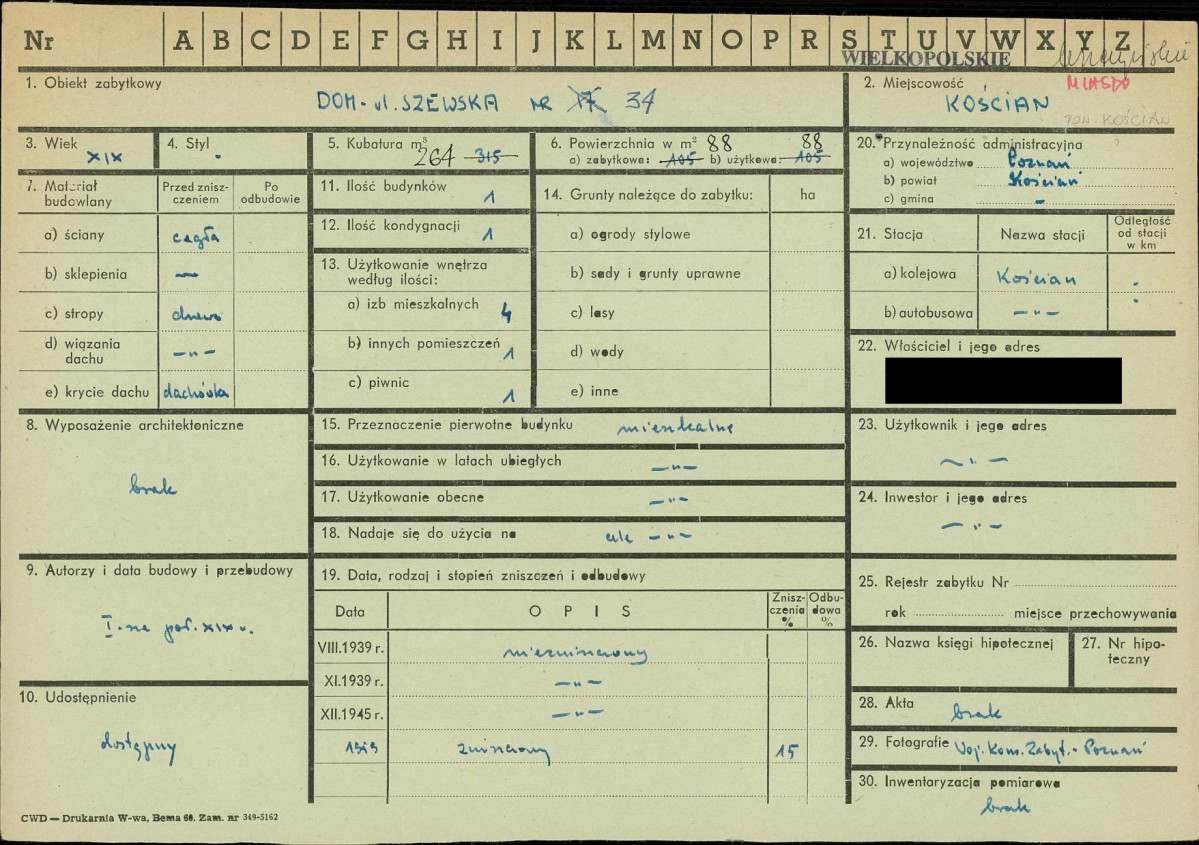 Nr A B C D E F G H I J K L M N O P R S T U V W X Y Z
WIELKOPOLSKIE
1. Obiekt zabytkowy
DOM - ul. SZEWSKA NR 17 34
2. Miejscowość
MIASTO
KOŚCIAN
POW. KOŚCIAN
3. Wiek
XIX
4. Styl
-
5. Kubatura m³
264 315
6. Powierzchnia w m² 88 88
a) zabytkowa: 105 b) użytkowa: 105
20. Przynależność administracyjna
a) województwo Poznań
b) powiat Kościan
c) gmina -
7. Materiał budowlany
Przed zniszczeniem
Po odbudowie
a) ściany cegła
b) sklepienia —
c) stropy drewn
d) wiązania dachu -„-
e) krycie dachu dachówka
11. Ilość budynków 1
12. Ilość kondygnacji 1
13. Użytkowanie wnętrza według ilości:
a) izb mieszkalnych 4
b) innych pomieszczeń 1
c) piwnic 1
14. Grunty należące do zabytku: ha
a) ogrody stylowe
b) sady i grunty uprawne
c) lasy
d) wody
e) inne
21. Stacja Nazwa stacji Odległość od stacji w km
a) kolejowa Kościan
b) autobusowa -„-
22. Właściciel i jego adres
8. Wyposażenie architektoniczne
brak
15. Przeznaczenie pierwotne budynku mieszkalne
16. Użytkowanie w latach ubiegłych -„-
17. Użytkowanie obecne -„-
18. Nadaje się do użycia na cele -„-
23. Użytkownik i jego adres
-„-
24. Inwestor i jego adres
-„-
9. Autorzy i data budowy i przebudowy
I-na poł. XIX w.
19. Data, rodzaj i stopień zniszczeń i odbudowy
Data OPIS Zniszczenia % Odbudowa %
VIII.1939 r. niezniszczony
XI.1939 r. -„-
XII.1945 r. -„-
1959 zniszczony 15
10. Udostępnienie
dostępny
25. Rejestr zabytku Nr
rok miejsce przechowywania
26. Nazwa księgi hipotecznej
27. Nr hipoteczny
28. Akta
brak
29. Fotografie Woj. Kons. Zabyt. - Poznań
30. Inwentaryzacja pomiarowa
brak
CWD — Drukarnia W-wa, Bema 60. Zam. nr 349-5162